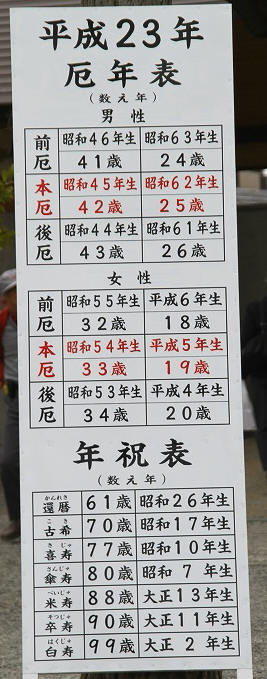 平成23年
厄年表
(数え年)
男性
前厄 昭和46年生 昭和63年生
41歳 24歳
本厄 昭和45年生 昭和62年生
42歳 25歳
後厄 昭和44年生 昭和61年生
43歳 26歳
女性
前厄 昭和55年生 平成6年生
32歳 18歳
本厄 昭和54年生 平成5年生
33歳 19歳
後厄 昭和53年生 平成4年生
34歳 20歳
年祝表
(数え年)
かんれき
還暦 61歳 昭和26年生
こき
古希 70歳 昭和17年生
きじゅ
喜寿 77歳 昭和10年生
さんじゅ
傘寿 80歳 昭和7年生
べいじゅ
米寿 88歳 大正13年生
そつじゅ
卒寿 90歳 大正11年生
はくじゅ
白寿 99歳 大正2年生